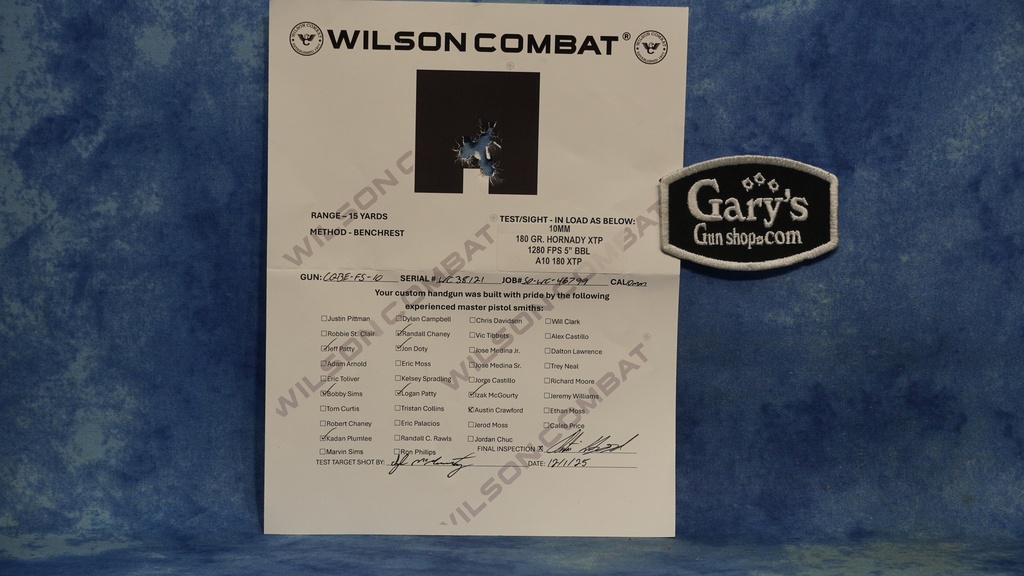 WILSON COMBAT®
RANGE – 15 YARDS
METHOD - BENCHREST
TEST/SIGHT - IN LOAD AS BELOW:
10MM
180 GR. HORNADY XTP
1280 FPS 5" BBL
A10 180 XTP
GUN: CQBE-FS-10 SERIAL # WC38121 JOB# SO-WC-46799 CAL 10mm
Your custom handgun was built with pride by the following
experienced master pistol smiths:
☐Justin Pittman ☐Dylan Campbell ☐Chris Davidson ☐Will Clark
☐Robbie St. Clair ☑Randall Chaney ☐Vic Tibbets ☐Alex Castillo
☑Jeff Patty ☑Jon Doty ☐Jose Medina Jr. ☐Dalton Lawrence
☐Adam Arnold ☐Eric Moss ☐Jose Medina Sr. ☐Trey Neal
☐Eric Toliver ☐Kelsey Spradling ☐Jorge Castillo ☐Richard Moore
☑Bobby Sims ☑Logan Patty ☑Izak McGourty ☐Jeremy Williams
☐Tom Curtis ☐Tristan Collins ☑Austin Crawford ☐Ethan Moss
☐Robert Chaney ☐Eric Palacios ☐Jerod Moss ☐Caleb Price
☑Kadan Plumlee ☐Randall C. Rawls ☐Jordan Chuc
☐Marvin Sims ☐Ron Phillips FINAL INSPECTION X
TEST TARGET SHOT BY: DATE: 12/1/25
WILSON COMBAT®
WILSON COMBAT®
WILSON COMBAT
Gary's
Gun shop.com